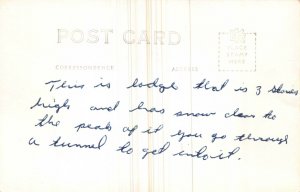 POST CARD
PLACE
STAMP
HERE
CORRESPONDENCE ADDRESS
This is lodge that is 3 stories
high and has snow clear to
the peak of it you go through
a tunnel to get into it.